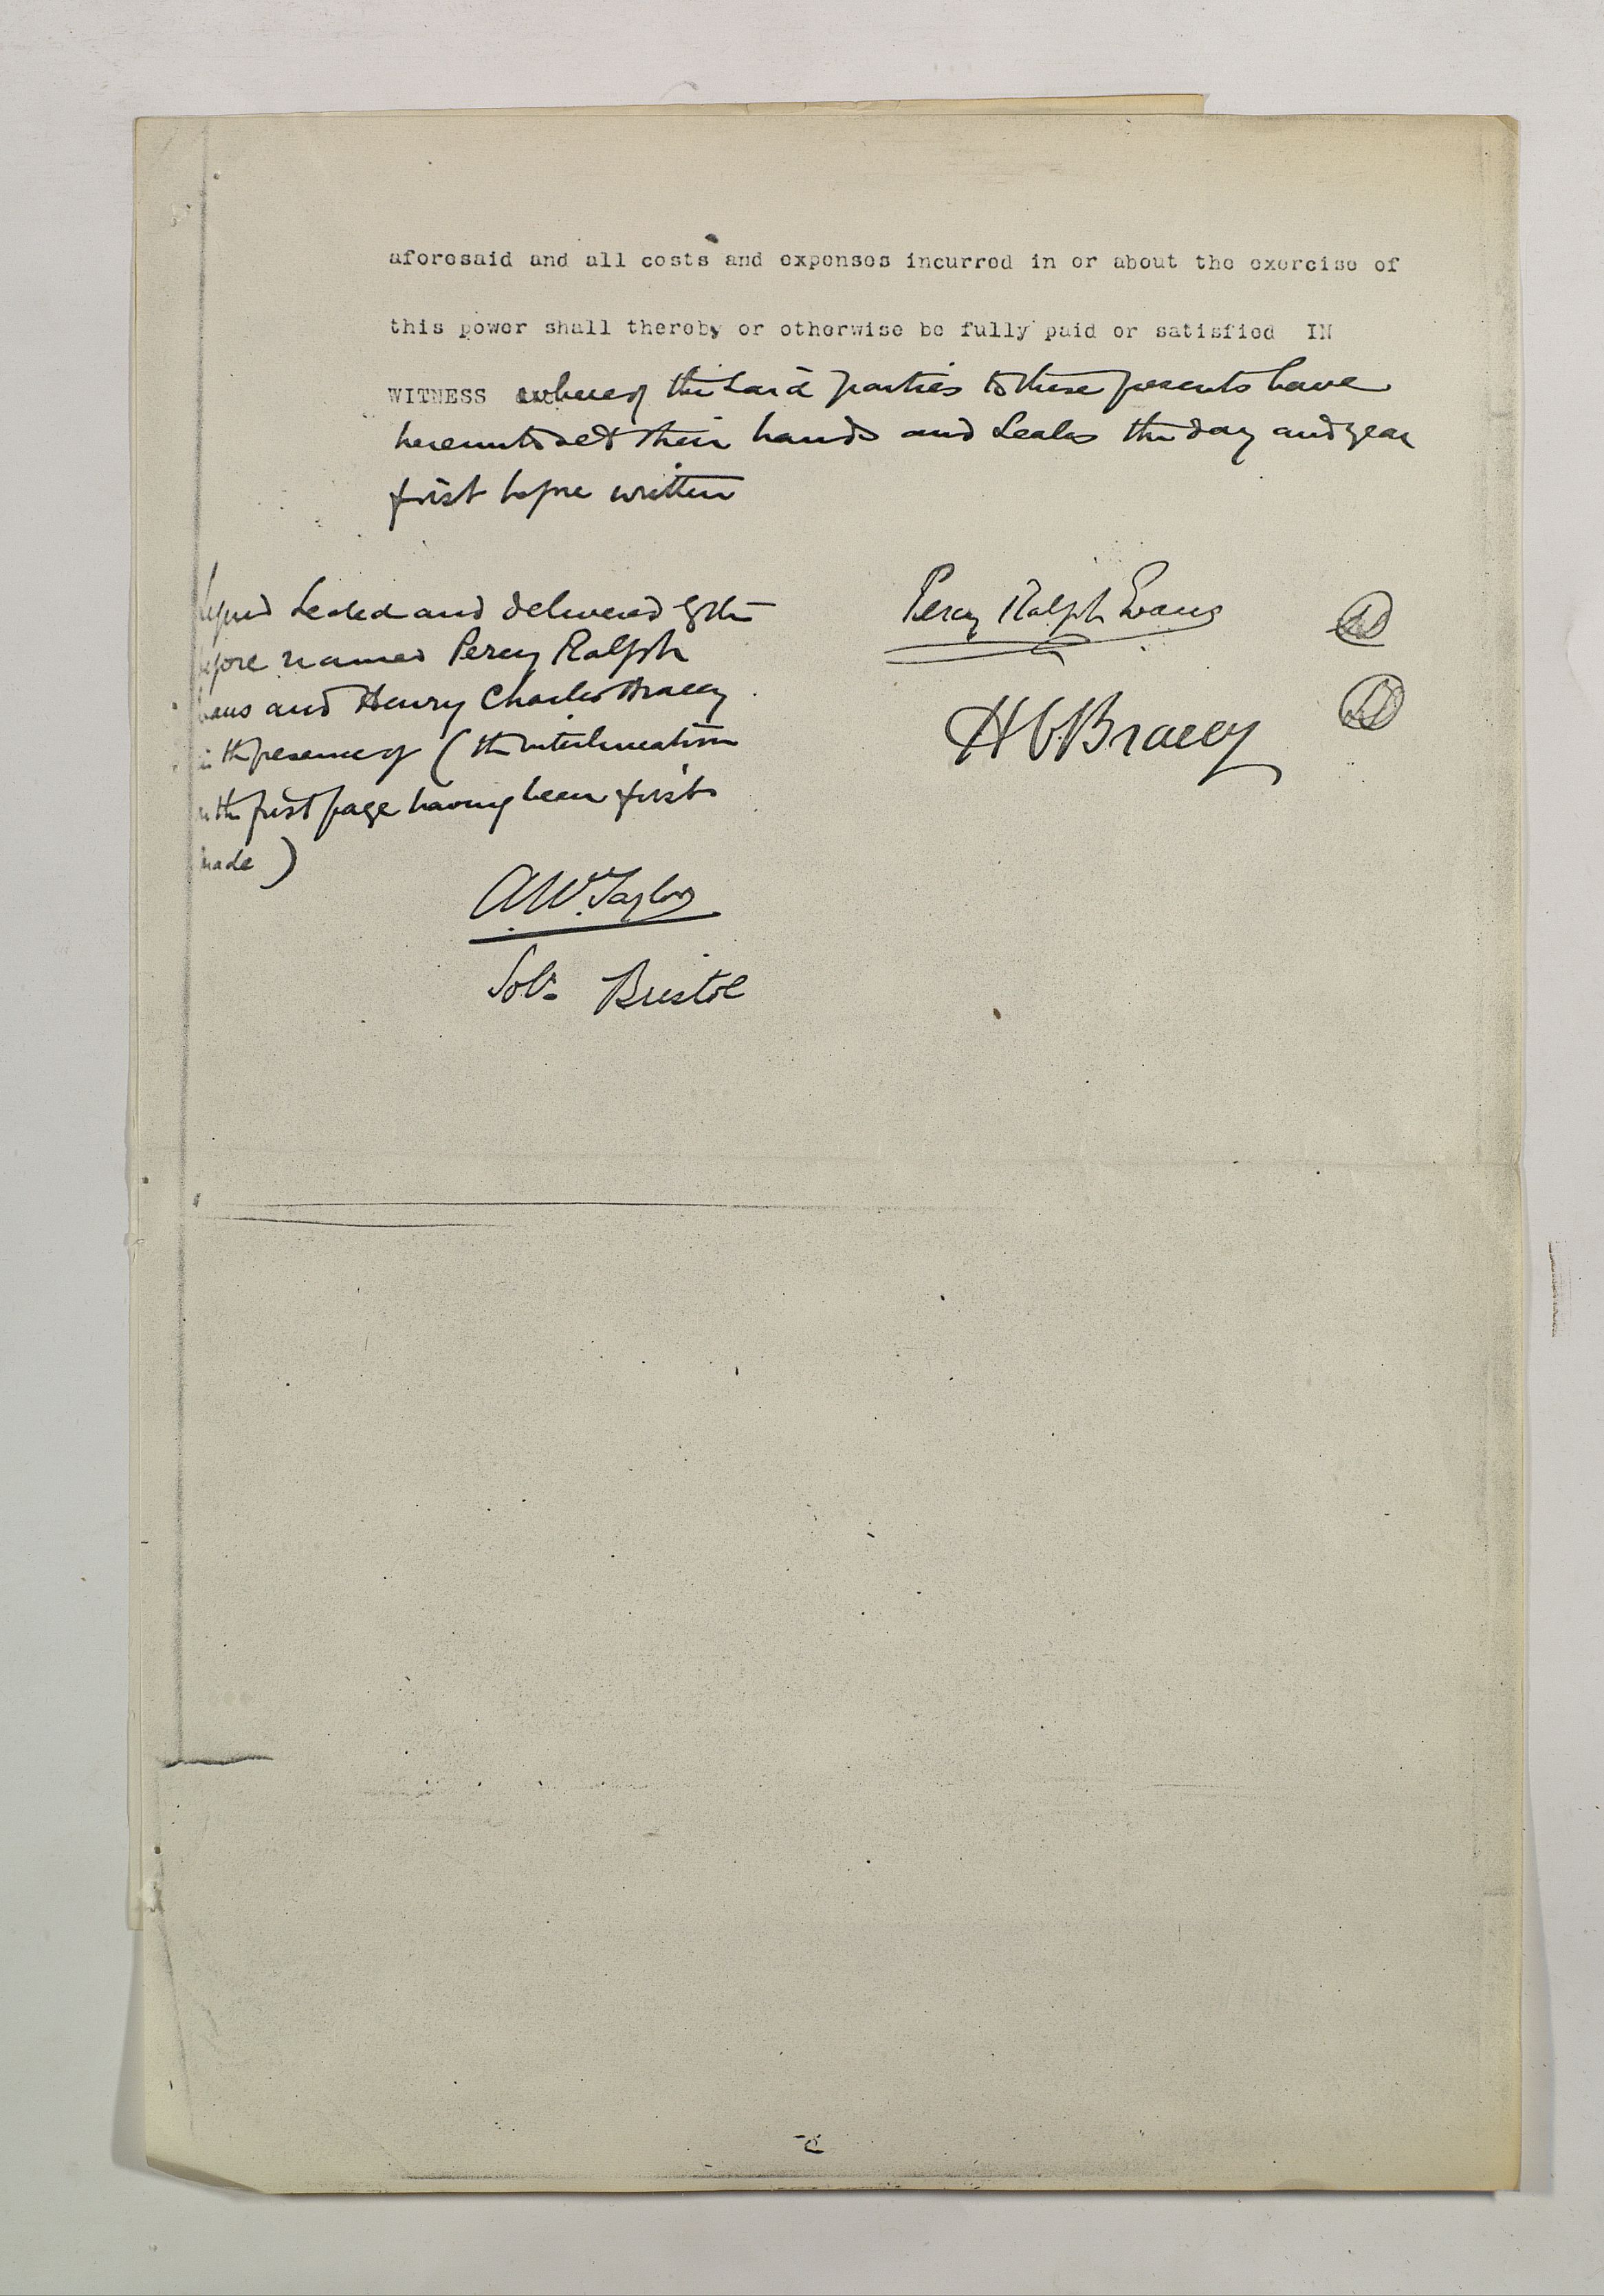 aforesaid and all costs and expenses incurred in or about the exercise of
this power shall thereby or otherwise be fully paid or satisfied IN
WITNESS whereof the said parties to these presents have
hereunto set their hands and seals the day and year
first before written
Signed Sealed and delivered by the
before named Percy Ralph
Evans and Henry Charles Bracey
in the presence of (the interlineation
in the first page having been first
made)
Percy Ralph Evans
H C Bracey
A W Taylor
Solr. Bristol